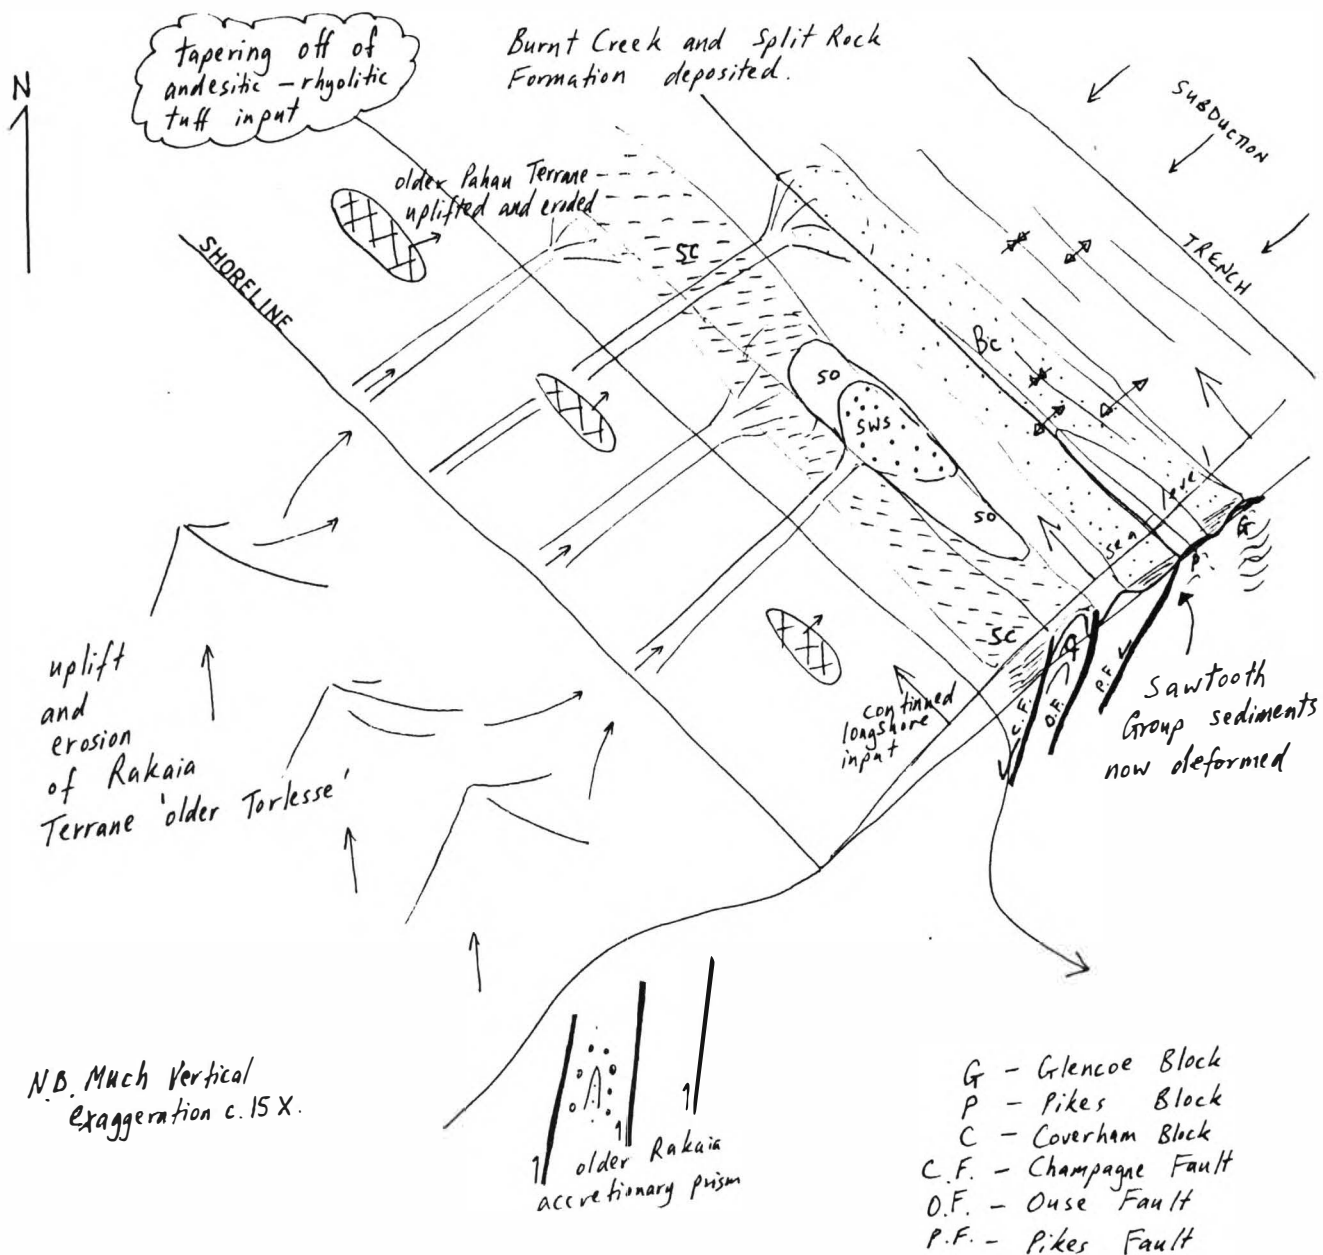 tapering off of
andesitic - rhyolitic
tuff input
Burnt Creek and Split Rock
Formation deposited.
N
SUBDUCTION
TRENCH
older Pahau Terrane
uplifted and eroded
SHORELINE
SC
Bc
SO
SWS
SO
SC
sea level
G
P
C.F.
O.F.
P.F.
continued
longshore
input
Sawtooth
Group sediments
now deformed
uplift
and
erosion
of Rakaia
Terrane 'older Torlesse'
older Rakaia
accretionary prism
N.B. Much Vertical
exaggeration c. 15 X.
G - Glencoe Block
P - Pikes Block
C - Coverham Block
C.F. - Champagne Fault
O.F. - Ouse Fault
P.F. - Pikes Fault